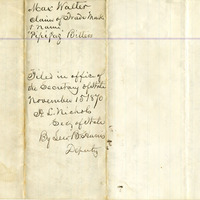 Max Walter
claim of Trade Mark
& Name
Bitters
Filed in office of
the Secretary of State
November 15 1870
H. L. Nichols
Secy of State
By
Deputy